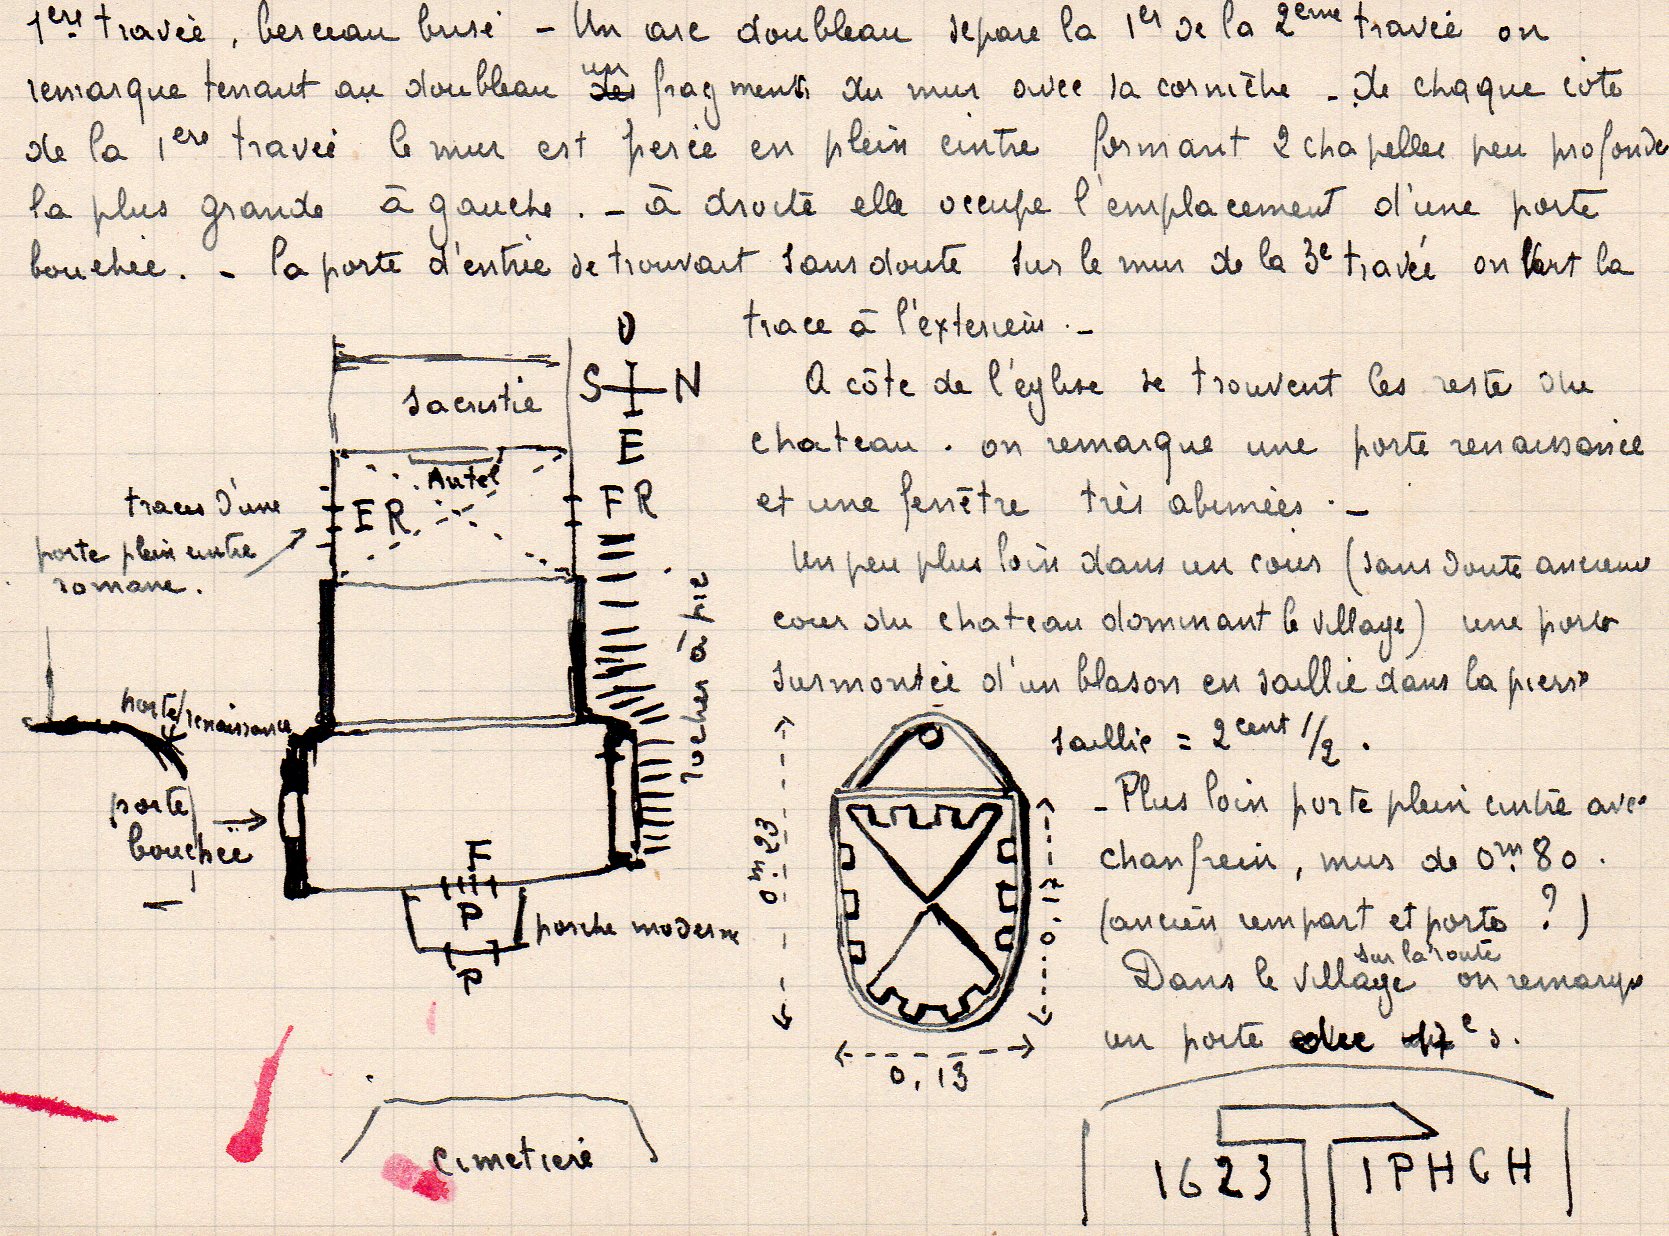 1ere travée, berceau brisé – Un arc doubleau separe la 1er de la 2eme travée on
remarque tenant au doubleau un fragment du mur avec sa corniche – de chaque coté
de la 1ere travée le mur est percé en plein cintre formant 2 chapelles peu profondes
la plus grande à gauche. – à droite elle occupe l'emplacement d'une porte
bouchée. – la porte d'entrée se trouvait sans doute sur le mur de la 3e travée on voit la
trace à l'exterieur. –
A côté de l'église se trouvent les reste du
chateau. on remarque une porte renaissance
et une fenêtre très abimées. –
Un peu plus loin dans un cour (sans doute ancienne
cour du chateau dominant le village) une porte
surmontée d'un blason en saillie dans la pierre
saillie = 2 cent 1/2.
– Plus loin porte plein cintre avec
chanfrein, mur de 0m.80.
(ancien rempart et porte ?)
Dans le village sur la route on remarque
un porte 17e s.
O
S N
E
sacristie
Autel
FR
FR
traces d'une
porte plein cintre
romane.
rocher à pic
porte renaissance
porte
bouchée
F
P
porche moderne
P
0m.23
0.17
0,13
cimetière
1623 IPHGH